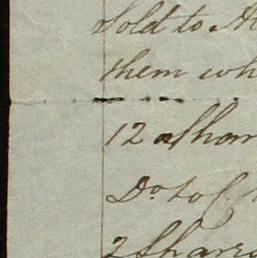 Sold to
them wh
12 Shar
Do to C
2 Shares